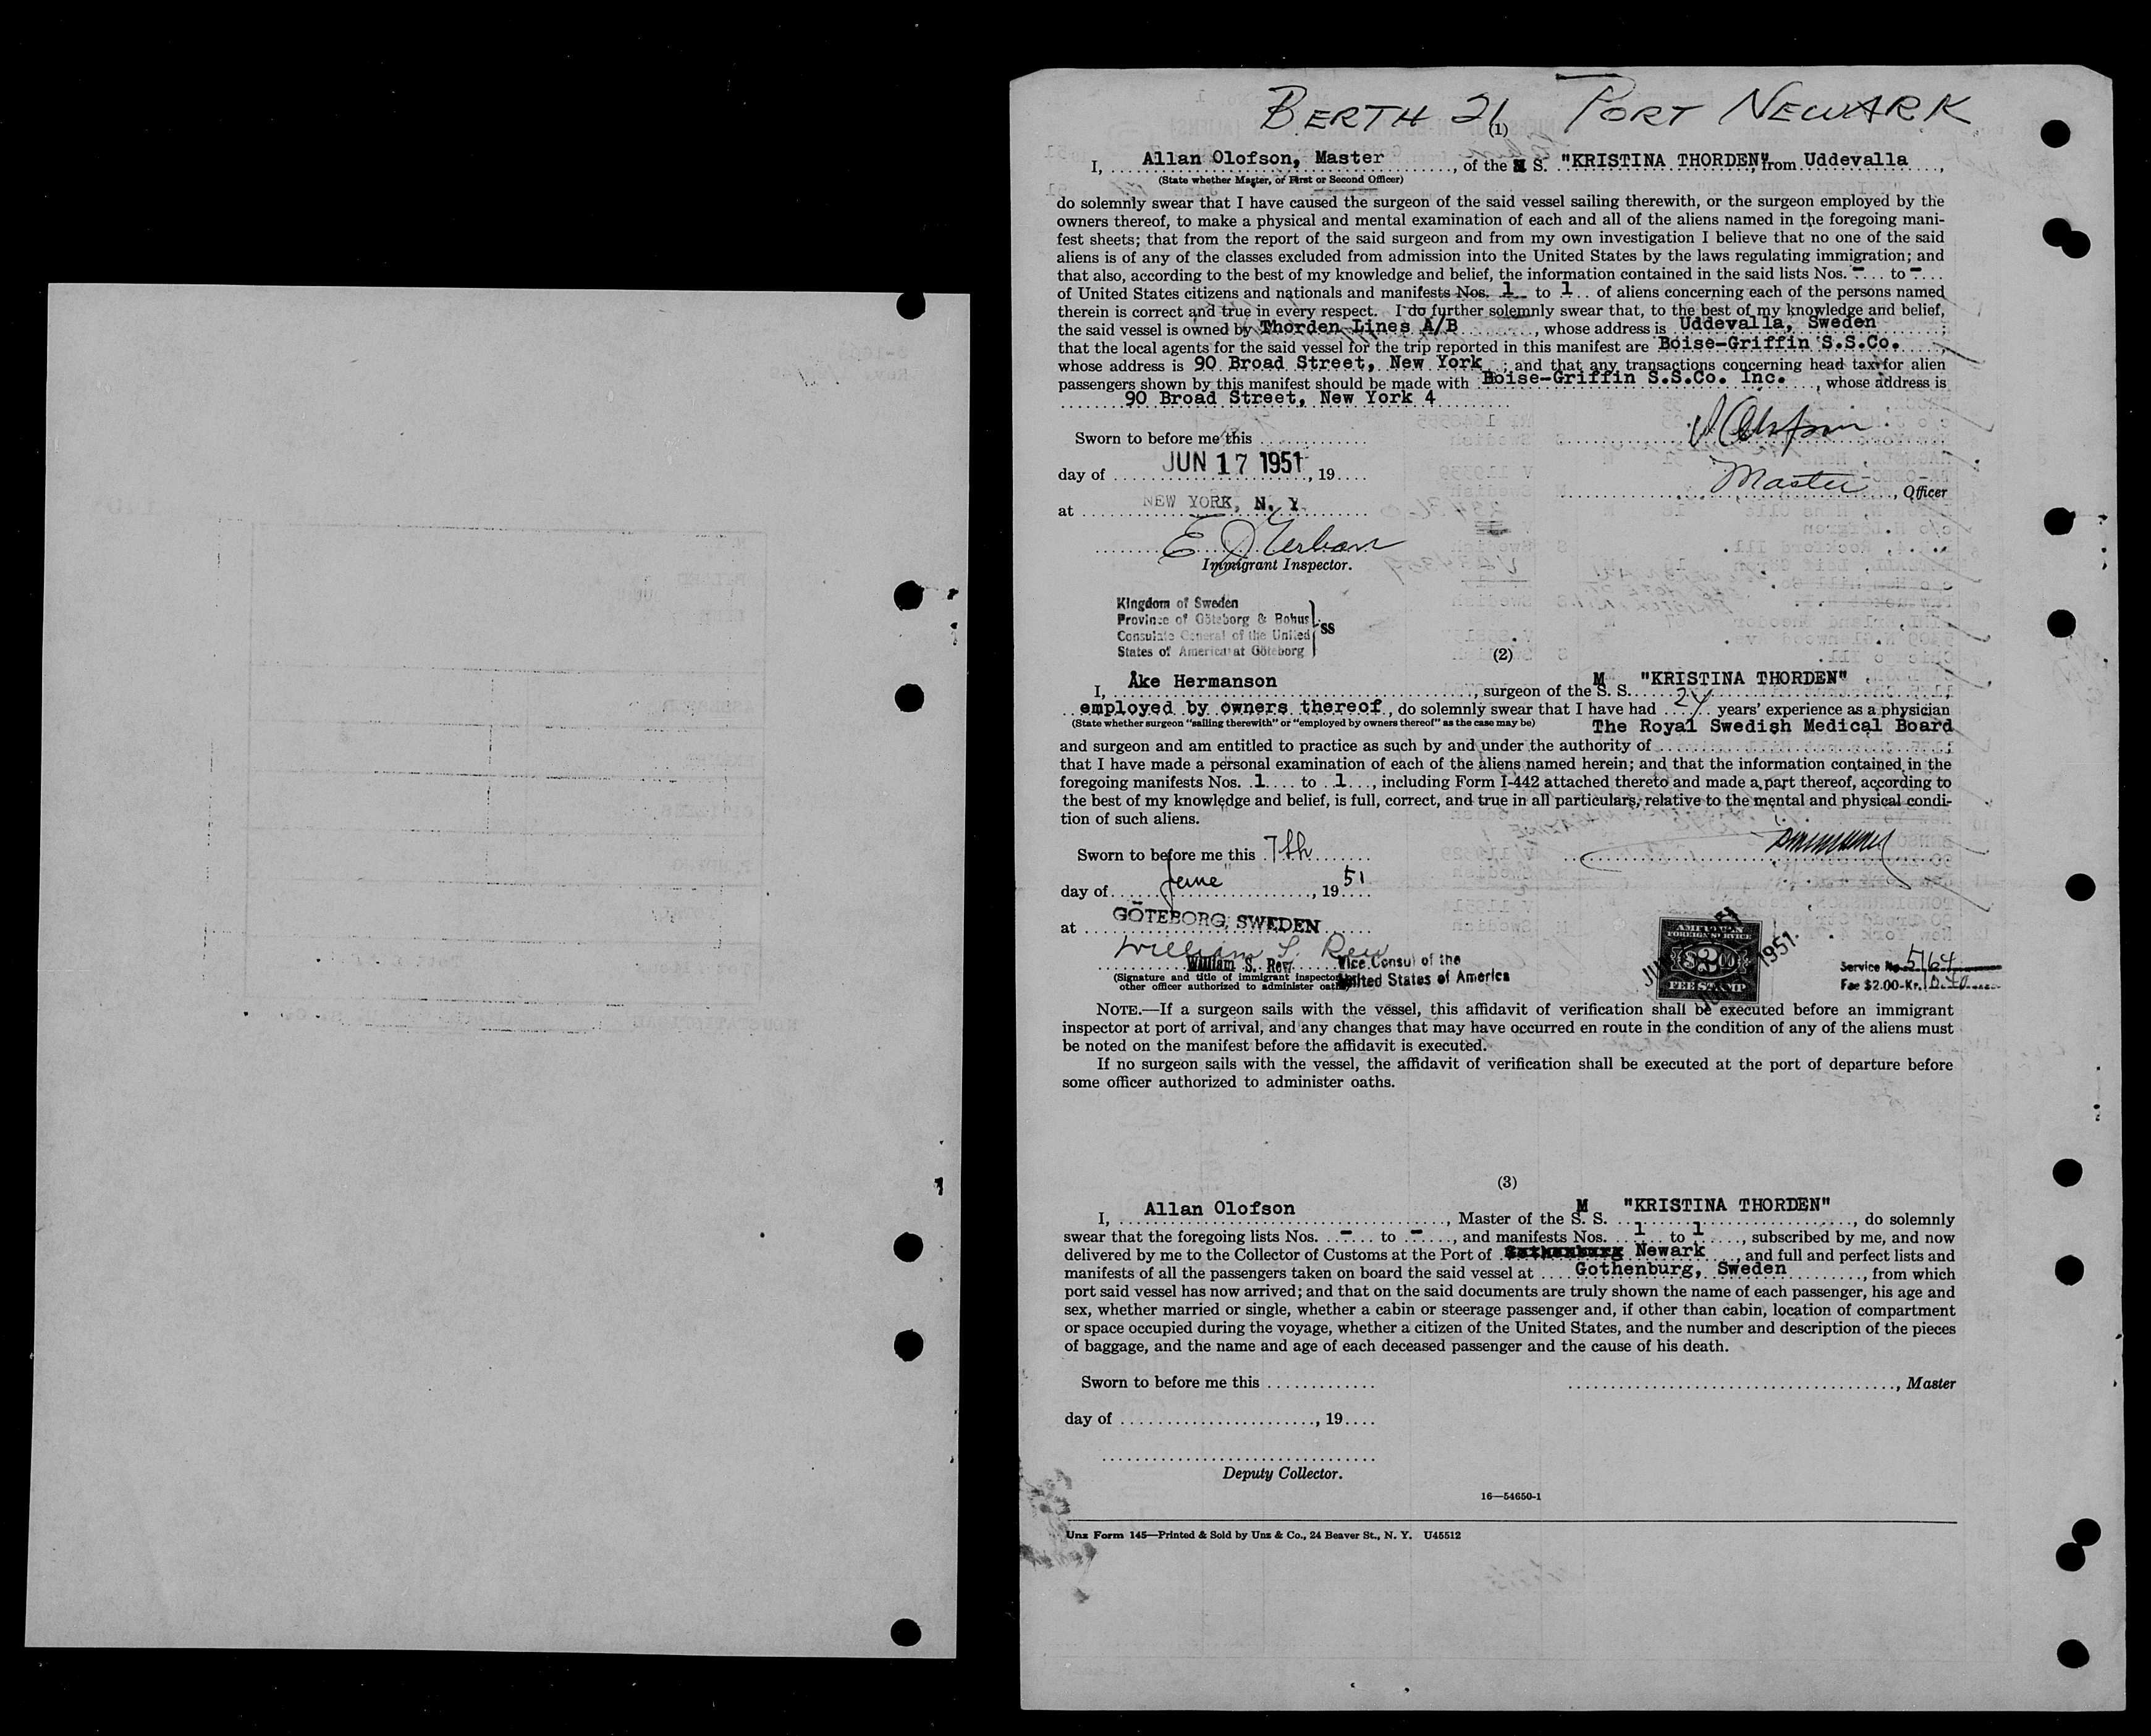 BERTH 21 PORT NEWARK
(1)
I, Allan Olofson, Master, of the M S. "KRISTINA THORDEN", from Uddevalla,
(State whether Master, or First or Second Officer)
do solemnly swear that I have caused the surgeon of the said vessel sailing therewith, or the surgeon employed by the
owners thereof, to make a physical and mental examination of each and all of the aliens named in the foregoing mani-
fest sheets; that from the report of the said surgeon and from my own investigation I believe that no one of the said
aliens is of any of the classes excluded from admission into the United States by the laws regulating immigration; and
that also, according to the best of my knowledge and belief, the information contained in the said lists Nos. - to -
of United States citizens and nationals and manifests Nos. 1 to 1 of aliens concerning each of the persons named
therein is correct and true in every respect. I do further solemnly swear that, to the best of my knowledge and belief,
the said vessel is owned by Thorden Lines A/B, whose address is Uddevalla, Sweden;
that the local agents for the said vessel for the trip reported in this manifest are Boise-Griffin S.S.Co.,
whose address is 90 Broad Street, New York; and that any transactions concerning head tax for alien
passengers shown by this manifest should be made with Boise-Griffin S.S.Co. Inc., whose address is
90 Broad Street, New York 4
Sworn to before me this
day of JUN 17 1951, 19
Master, Officer
at NEW YORK, N. Y.
Immigrant Inspector.
Kingdom of Sweden
Province of Göteborg & Bohus
Consulate General of the United
States of America at Göteborg
SS
(2)
I, Åke Hermanson, surgeon of the M S. S. "KRISTINA THORDEN",
employed by owners thereof, do solemnly swear that I have had 24 years' experience as a physician
(State whether surgeon "sailing therewith" or "employed by owners thereof" as the case may be)
and surgeon and am entitled to practice as such by and under the authority of The Royal Swedish Medical Board
that I have made a personal examination of each of the aliens named herein; and that the information contained in the
foregoing manifests Nos. 1 to 1, including Form I-442 attached thereto and made a part thereof, according to
the best of my knowledge and belief, is full, correct, and true in all particulars, relative to the mental and physical condi-
tion of such aliens.
Sworn to before me this 7th
day of June, 19 51
at GÖTEBORG, SWEDEN
William S. Rew
William S. Rew Vice Consul of the
United States of America
(Signature and title of immigrant inspector or
other officer authorized to administer oaths)
AMERICAN
FOREIGN SERVICE
$2
FEE STAMP
1951
Service No 5164
Fee $2.00-Kr.
NOTE.—If a surgeon sails with the vessel, this affidavit of verification shall be executed before an immigrant
inspector at port of arrival, and any changes that may have occurred en route in the condition of any of the aliens must
be noted on the manifest before the affidavit is executed.
If no surgeon sails with the vessel, the affidavit of verification shall be executed at the port of departure before
some officer authorized to administer oaths.
(3)
I, Allan Olofson, Master of the M S. S. "KRISTINA THORDEN", do solemnly
swear that the foregoing lists Nos. - to -, and manifests Nos. 1 to 1, subscribed by me, and now
delivered by me to the Collector of Customs at the Port of Newark, and full and perfect lists and
manifests of all the passengers taken on board the said vessel at Gothenburg, Sweden, from which
port said vessel has now arrived; and that on the said documents are truly shown the name of each passenger, his age and
sex, whether married or single, whether a cabin or steerage passenger and, if other than cabin, location of compartment
or space occupied during the voyage, whether a citizen of the United States, and the number and description of the pieces
of baggage, and the name and age of each deceased passenger and the cause of his death.
Sworn to before me this
, Master
day of , 19
Deputy Collector.
16—54650-1
Unz Form 145—Printed & Sold by Unz & Co., 24 Beaver St., N. Y. U45512